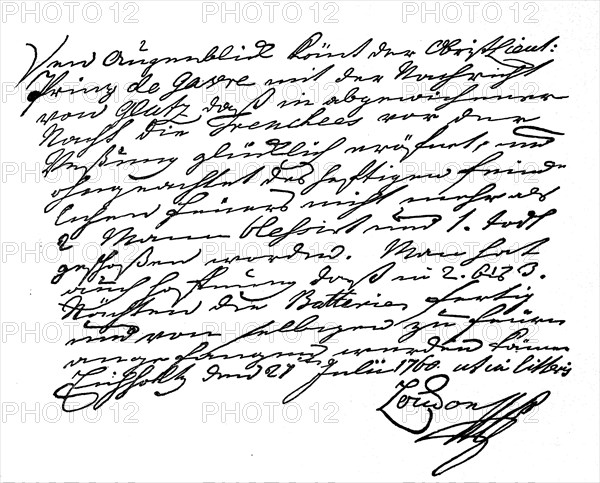 Den Augenblick kömt der Obristlieut:
Prinz de Gavre mit der Nachricht
von Glatz daß in abgewichener
Nacht die Trenchees vor der
Vestung glücklich eröfnet, und
ohngeachtet des heftigen feind
lichen feuers nicht mehr als
2 Mann blessirt und 1. todt
geschoßen worden. Man hat
auch hoffnung daß in 2. bis 3.
Nächten die Batterien fertig
und von selbigen zu feuern
angefangen werden könne
Eichholtz den 21ten Julii 1760. ut in litteris
Loudon